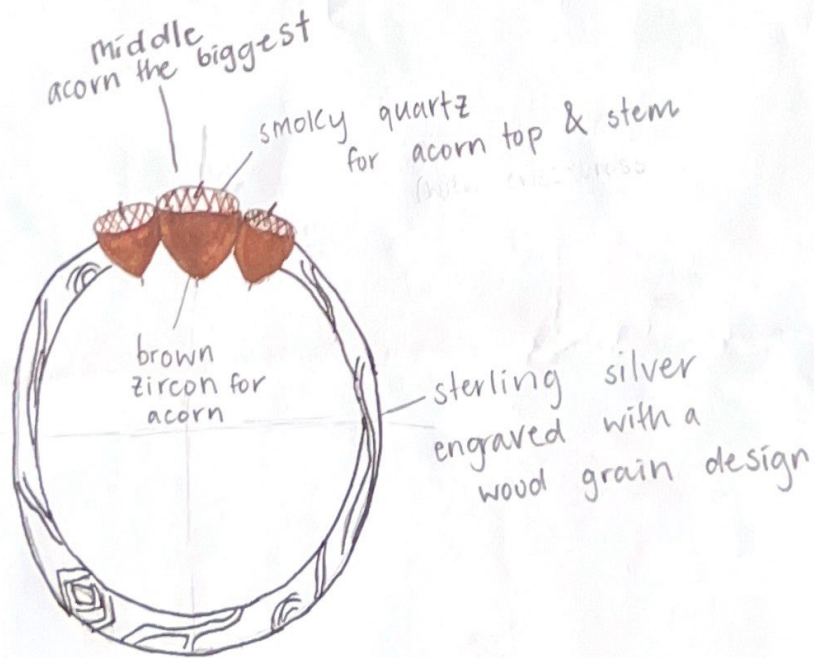 middle
acorn the biggest
smoky quartz
for acorn top & stem
brown
zircon for
acorn
sterling silver
engraved with a
wood grain design